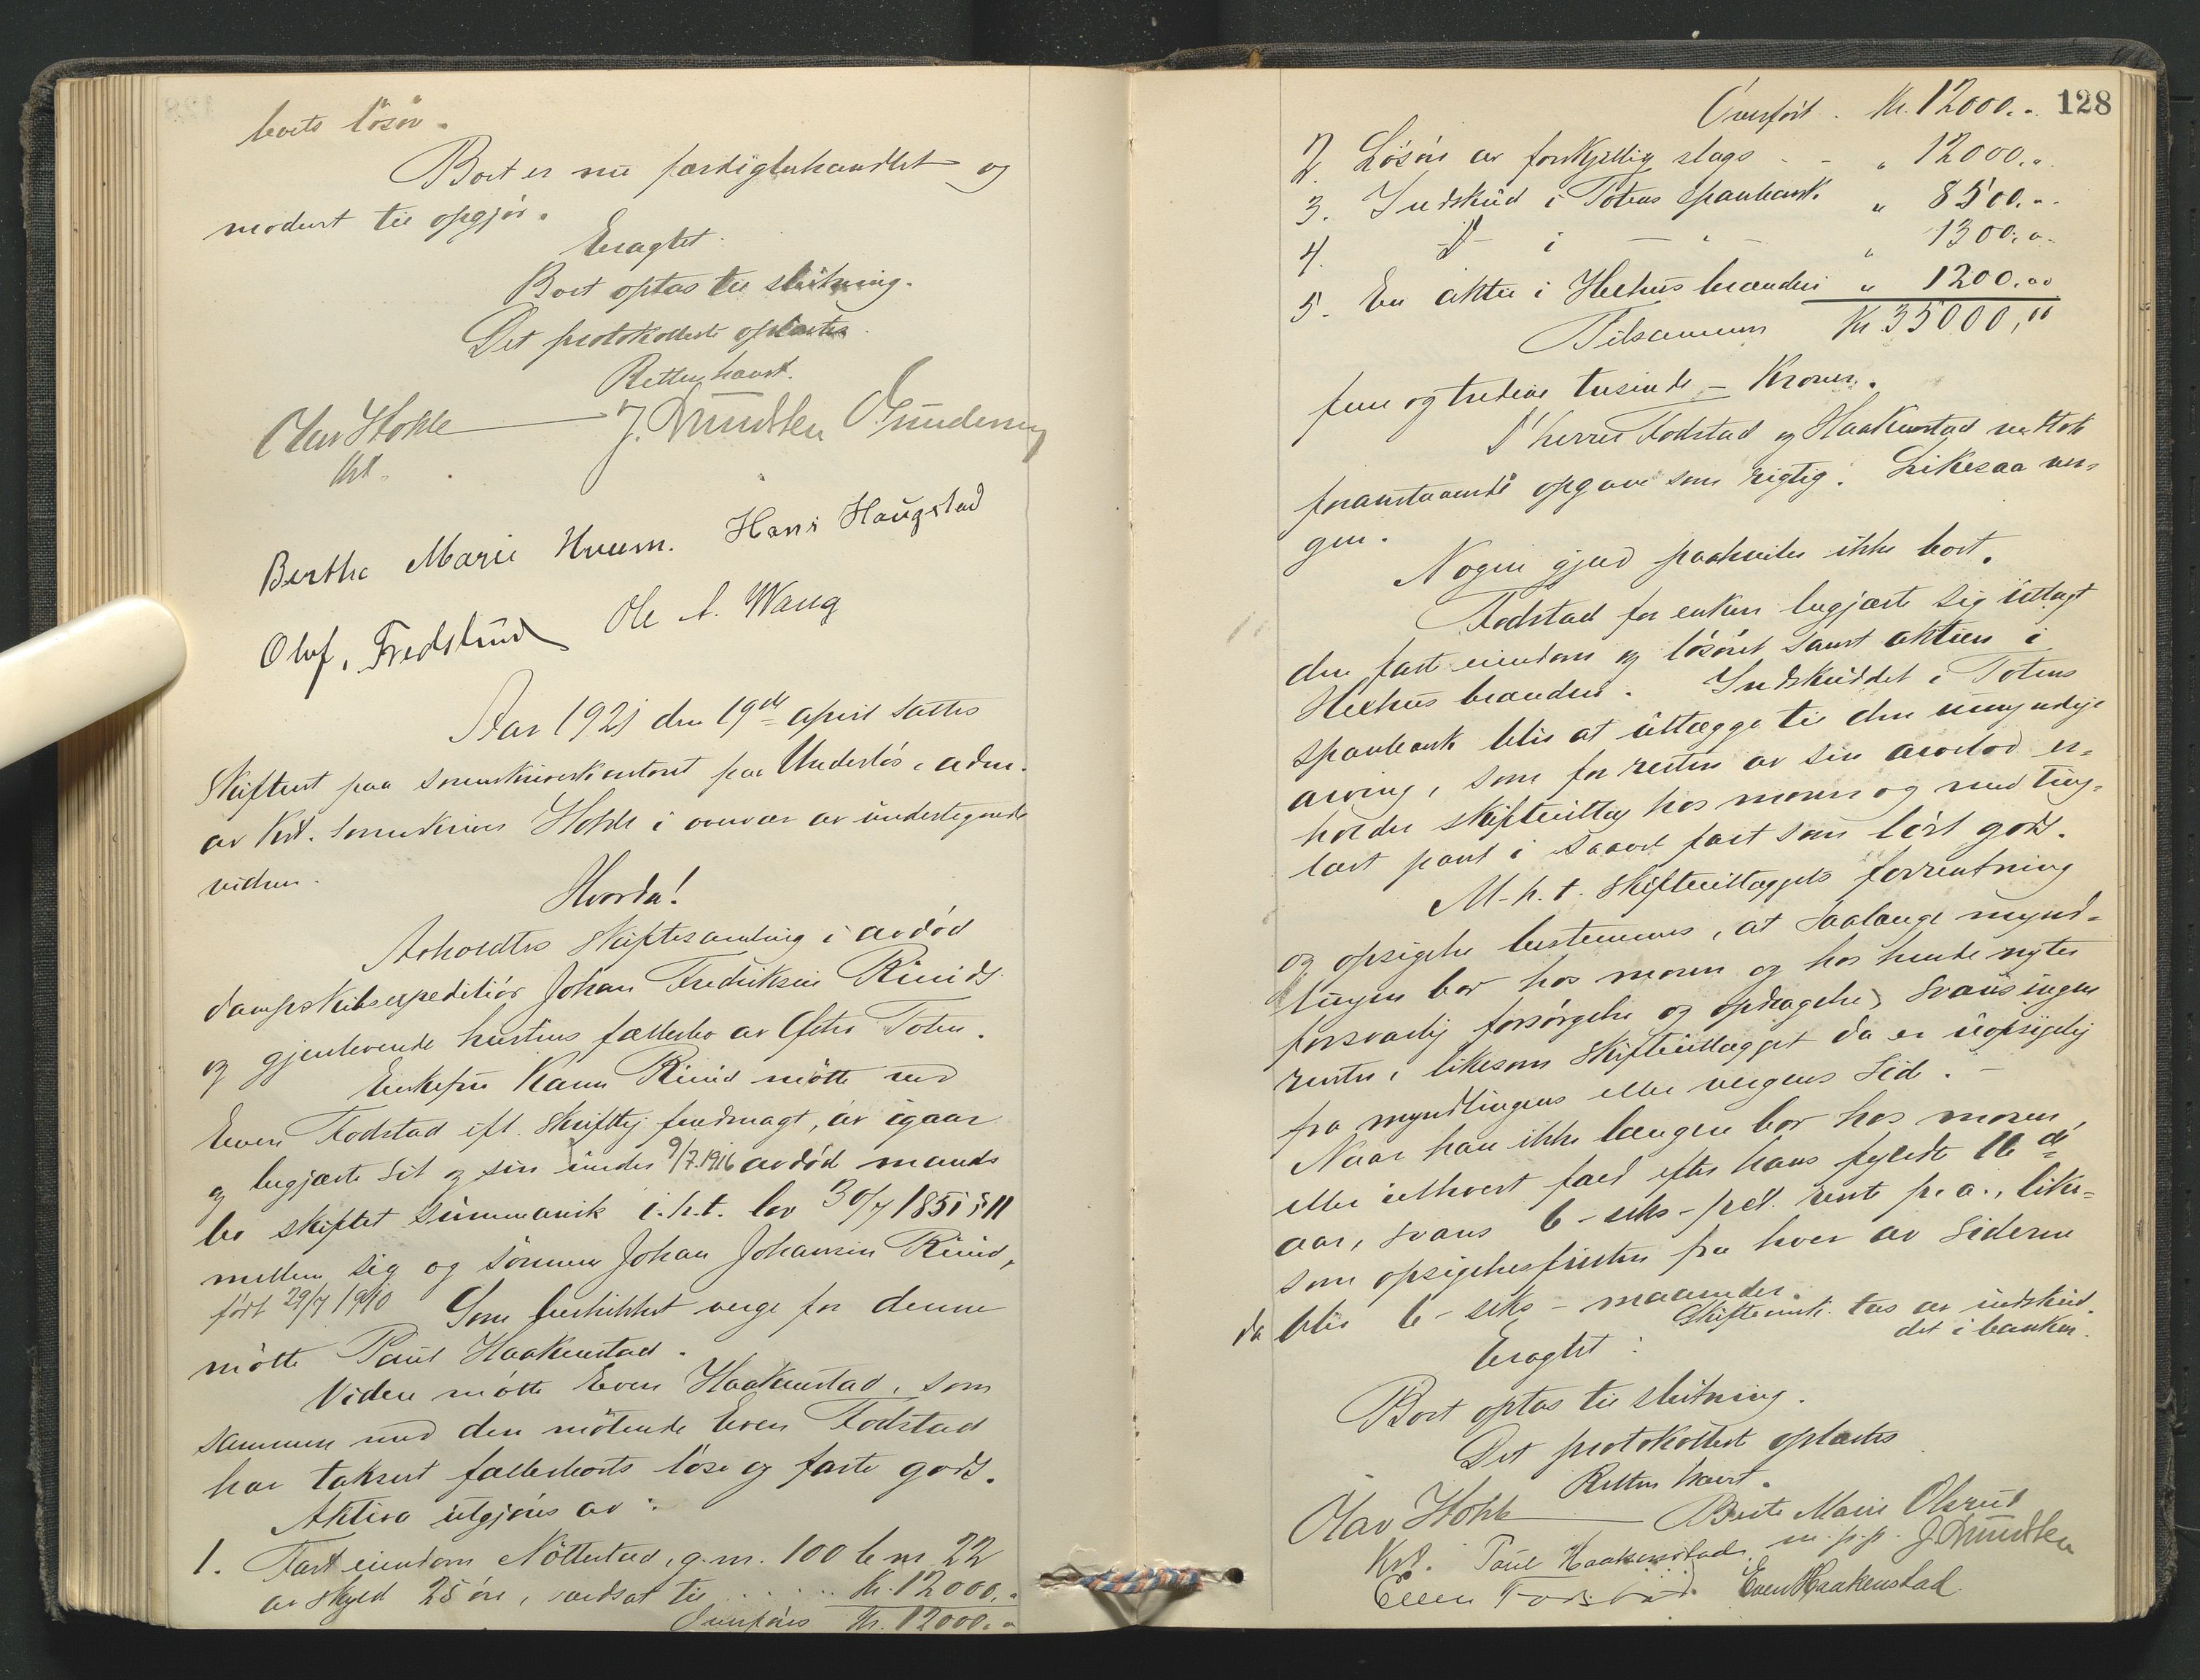 boets løsøre.
Boet er nu færdigbehandlet og
modent til opgjør.
Eragtet.
Boet optas til slutning.
Det protokollerte oplæstes.
Retten hævet.
Olav Hohle J. Smidsten O. Gundersen
kst.
Bertha Marie Hveem. Hans Haugstad
Oluf. Fredslund Ole A. Waug
Aar 1921 den 19de april sattes
Skifteret paa sorenskriverkontoret paa Underlös, adm.
av kst. sorenskriver Hohle i overvær av undertegnede
vidner.
Hvorda!
Avholdtes skiftesamling i avdød
dampskibsexpeditiør Johan Fredriksen Rinids
og gjenlevende hustrus fællesbo av Østre Toten.
Enkefru Rinid møtte med
Even Fodstad ifl. skriftlig fuldmagt, av igaar
og begjærte sit og sin under 9/7.1916 avdød mands
bo skiftet summarisk i.h.t. lov 30/7 1851 § 11
mellem sig og sønnen Johan Johansen Rinid,
født 29/7 1910 Som beskikket verge for denne
møtte Paul Haakenstad.
Videre møtte Even Haakenstad, som
sammen med den møtende Even Fodstad
har taksert fællesboets løse og faste gods.
Aktiva utgjøres av:
1. Fast eiendom Nøttestad, g.nr. 100 b nr 22
av skyld 25 øre, værdsat til ...... Kr. 12000,"
Overføres Kr. 12000."
128
Overført . Kr. 12000."
2. Løsøre av forskjellig slags - - " 12000."
3. Indskud i Totens sparebank. " 8500."
4. -D- i — " — " 1300."
5. En aktie i Helhus brænderi " 1200."
Tilsammen Kr. 35000,"
fem og tredive tusinde – Kroner.
D'herrer Fodstad og Haakenstad vedtok
foranstaaende opgave som rigtig. Likesaa ver-
gen.
Nogen gjæld paahviler ikke boet.
Fodstad for enken begjærte sig utlagt
den faste eiendom og løsøret samt aktien i
Helhus brænderi. Indskuddet i Totens
sparebank blir at utlægge til den umyndige
arving, som for resten av sin arvelod er-
holder skifteutlæg hos moren og med ting-
læst pant i saavel fast som løst gods.
M.h.t. skifteutlæggets forrentning
og opsigelse bestemmes, at saalænge mynd-
lingen bor hos moren og hos hende nyter
forsvarlig forsørgelse og opdragelse, svares ingen
renter, likesom skifteutlægget da er uopsigelig
fra myndlingens eller vergens side. -
Naar han ikke længere bor hos moren,
eller ialhvert fald efter hans fyldte 16de
aar, svares 6 - seks - pct. rente p. a., like-
som opsigelsesfristen fra hver av siderne
da blir 6 - seks - maaneder.
Skifteomk. tas av indskud-
det i banken.
Eragtet:
Boet optas til slutning.
Det protokollert oplæstes
Retten hævet.
Olav Hohle Berte Marie Olsrud
kst. Paul Haakenstad m.p.p. J. Smidsten
Even Fodstad. Even Haakenstad.